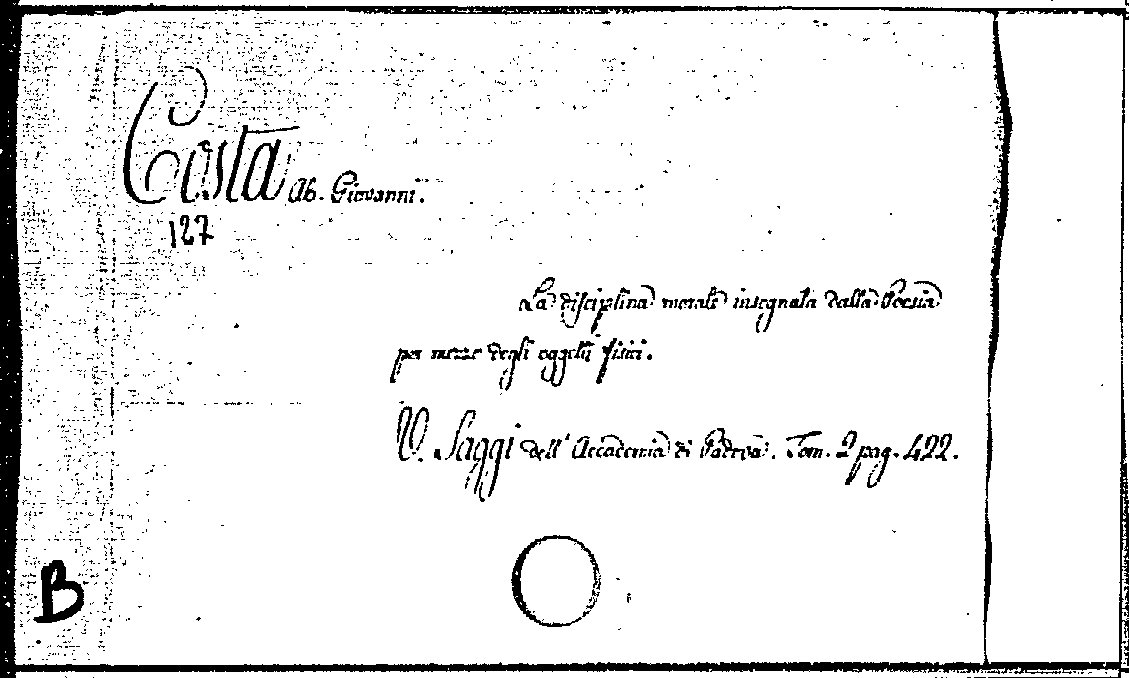 Costa Ab. Giovanni.
127
La disciplina morale insegnata dalla Poesia
per mezzo degli oggetti fisici.
V. Saggi dell' Accademia di Padova. Tom. 2 pag. 422.
B